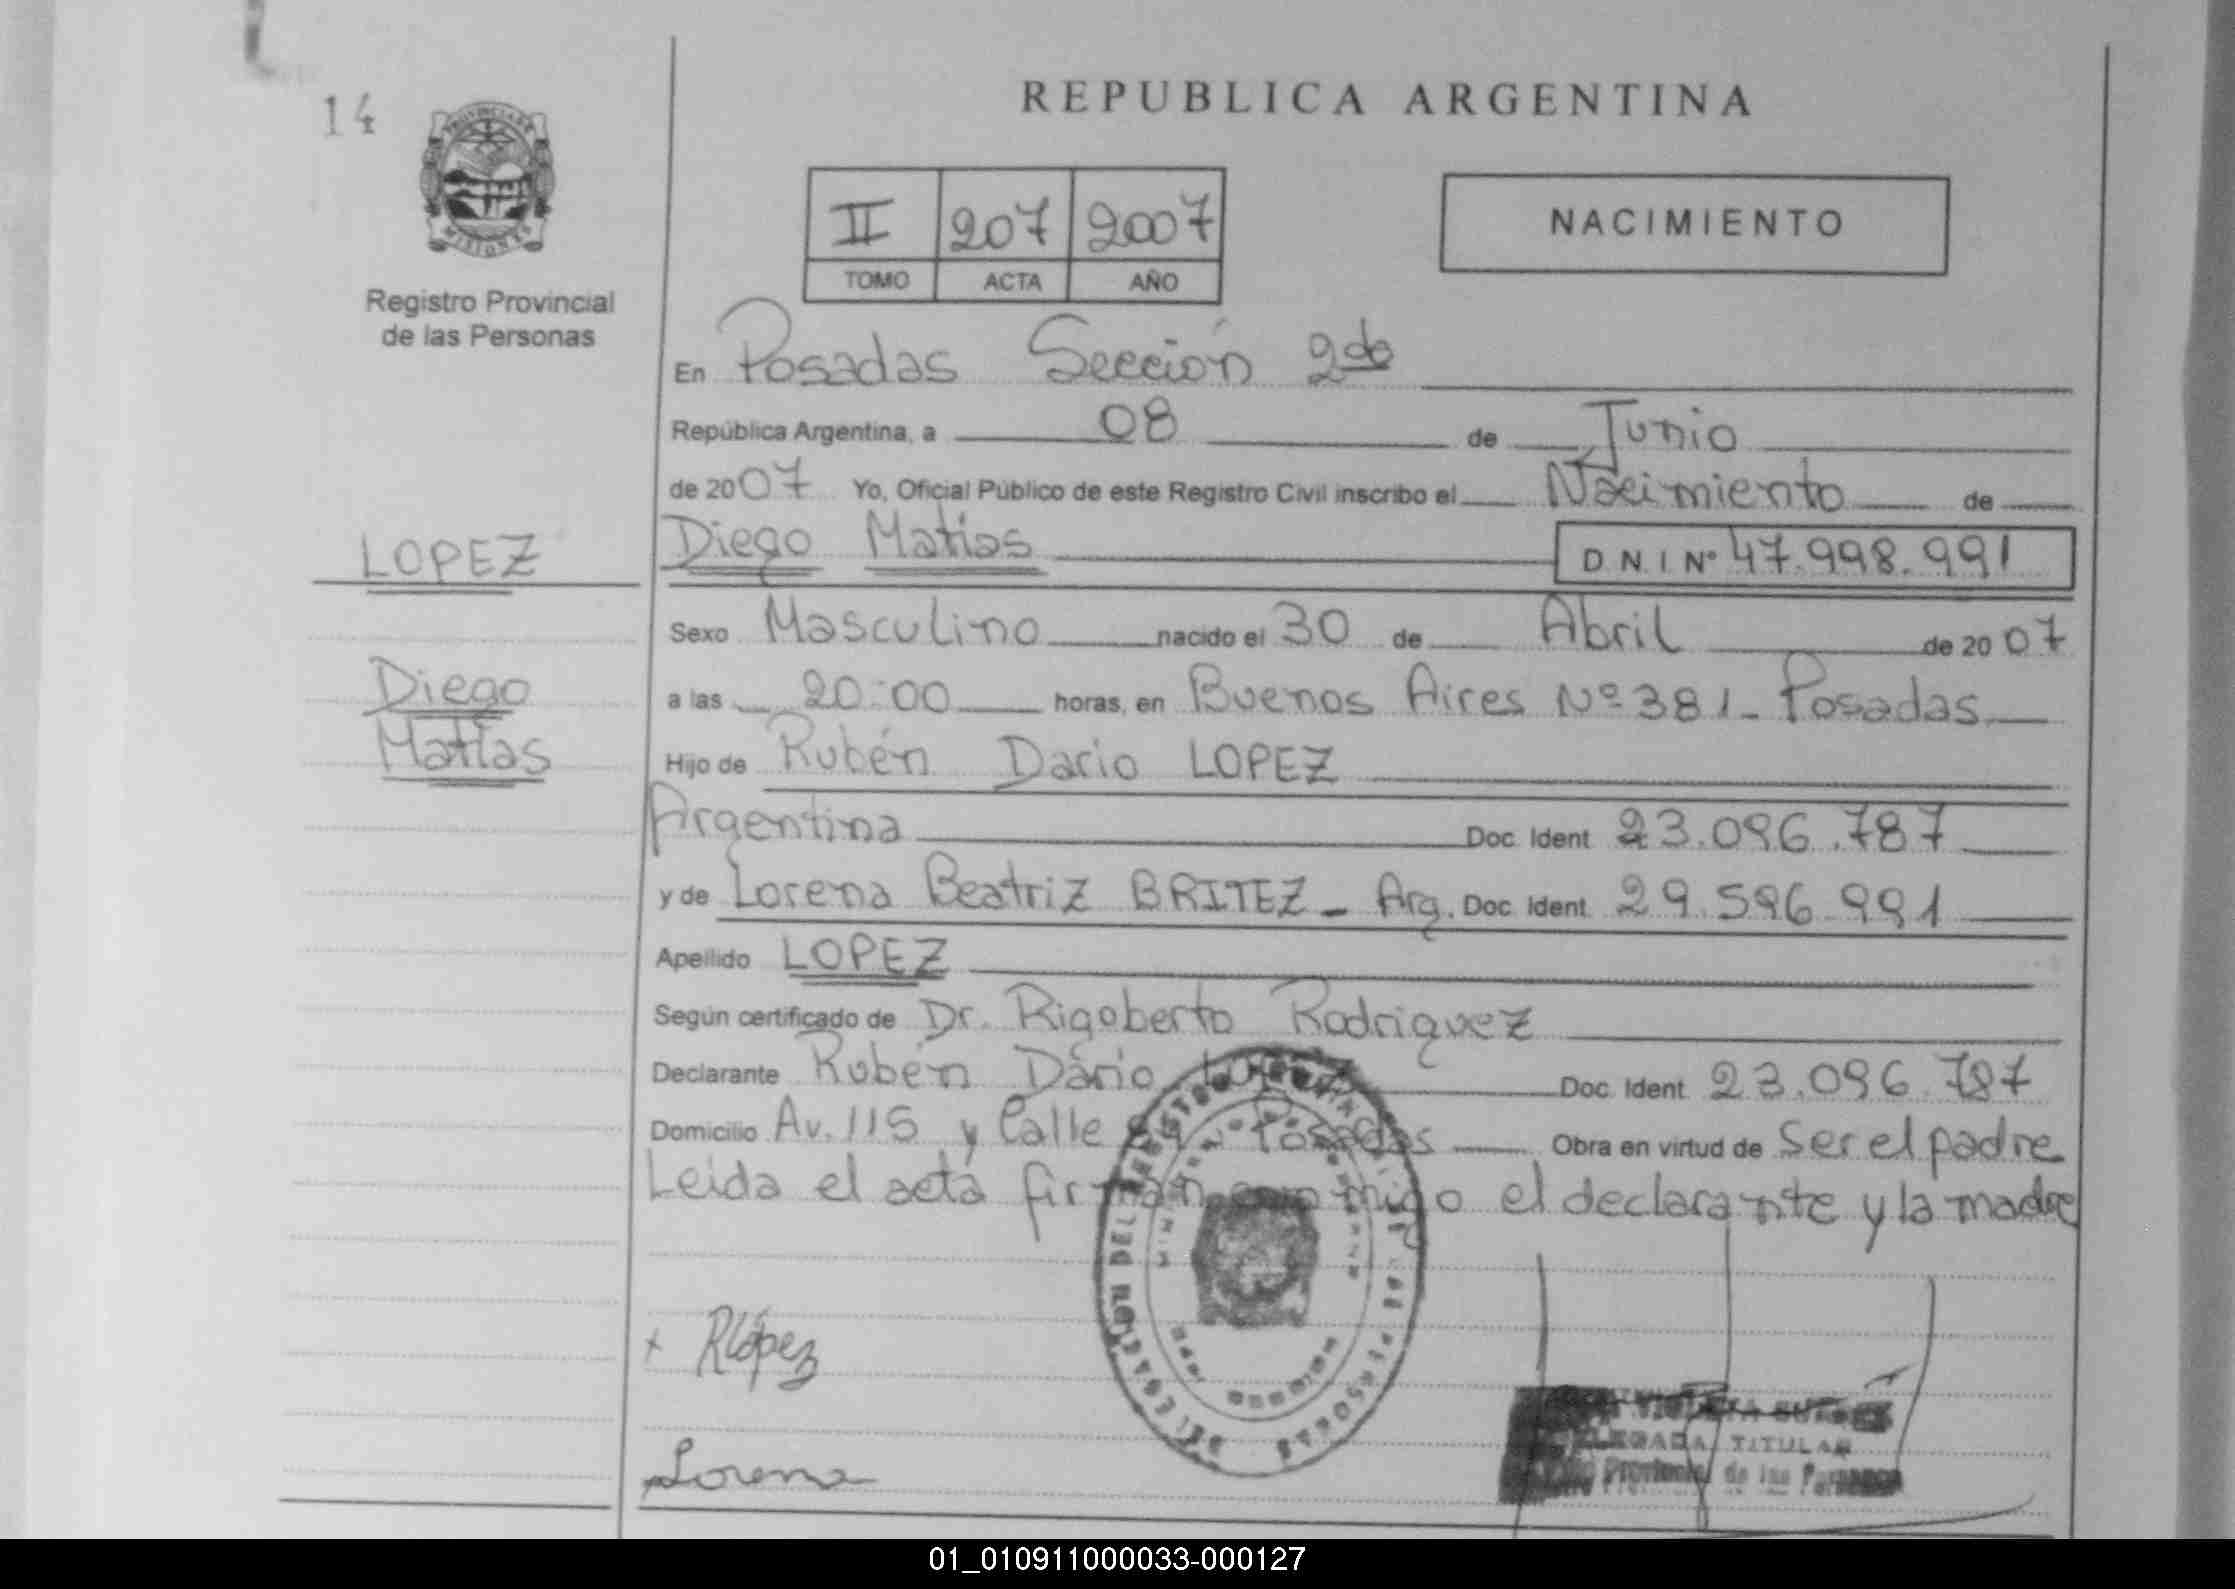 14
REPUBLICA ARGENTINA
PROVINCIA DE
MISIONES
Registro Provincial
de las Personas
II 207 2007
TOMO ACTA AÑO
NACIMIENTO
En Posadas Sección 2da
República Argentina, a 08 de Junio
de 2007 Yo, Oficial Público de este Registro Civil inscribo el Nacimiento de
LOPEZ
Diego Matías
D.N.I. Nº 47.998.991
Sexo Masculino nacido el 30 de Abril de 2007
Diego
Matías
a las 20:00 horas, en Buenos Aires Nº 381 - Posadas
Hijo de Rubén Dario LOPEZ
Argentina Doc. Ident. 23.096.787
y de Lorena Beatriz BRITEZ - Arg. Doc. Ident. 29.596.991
Apellido LOPEZ
Según certificado de Dr. Rigoberto Rodriguez
Declarante Rubén Dário Doc. Ident. 23.096.787
Domicilio Av. 115 y Calle Posadas Obra en virtud de Ser el padre
Leida el acta firman conmigo el declarante y la madre
+ RLópez
Lorena
DELEGADA TITULAR
Provincial de las Personas
01_010911000033-000127